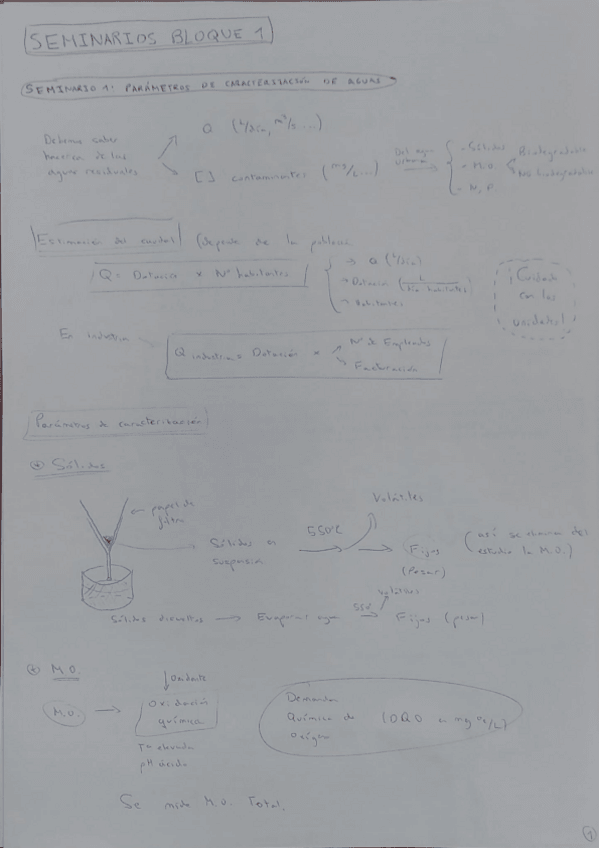 SEMINARIOS BLOQUE 1
SEMINARIO 1: PARÁMETROS DE CARACTERIZACIÓN DE AGUAS
Debemos saber
acerca de las
aguas residuales
Q (L/día, m³/s ...)
[ ] contaminantes (mg/L ...)
Del agua
urbana
- Sólidos
- M.O.
Biodegradable
No biodegradable
- N, P
Estimación del caudal (depende de la población
Q = Dotación × Nº habitantes
→ Q (L/día)
→ Dotación (L/día habitantes)
→ Habitantes
¡Cuidado
con las
unidades!
En industria
Q industria = Dotación ×
Nº de Empleados
Facturación
Parámetros de caracterización
Sólidos
papel de
filtro
Sólidos en
suspensión
550ºC
Volátiles
Fijos
(Pesar)
(así se
estudio la M.O.)
Sólidos disueltos → Evaporar agua
550
Volátiles
Fijos (pesar)
M.O.
M.O.
Oxidante
Oxidación
química
Tª elevada
pH ácido
Demanda
Química de
oxígeno
(DQO en mg O₂/L)
Se mide M.O. Total.
1